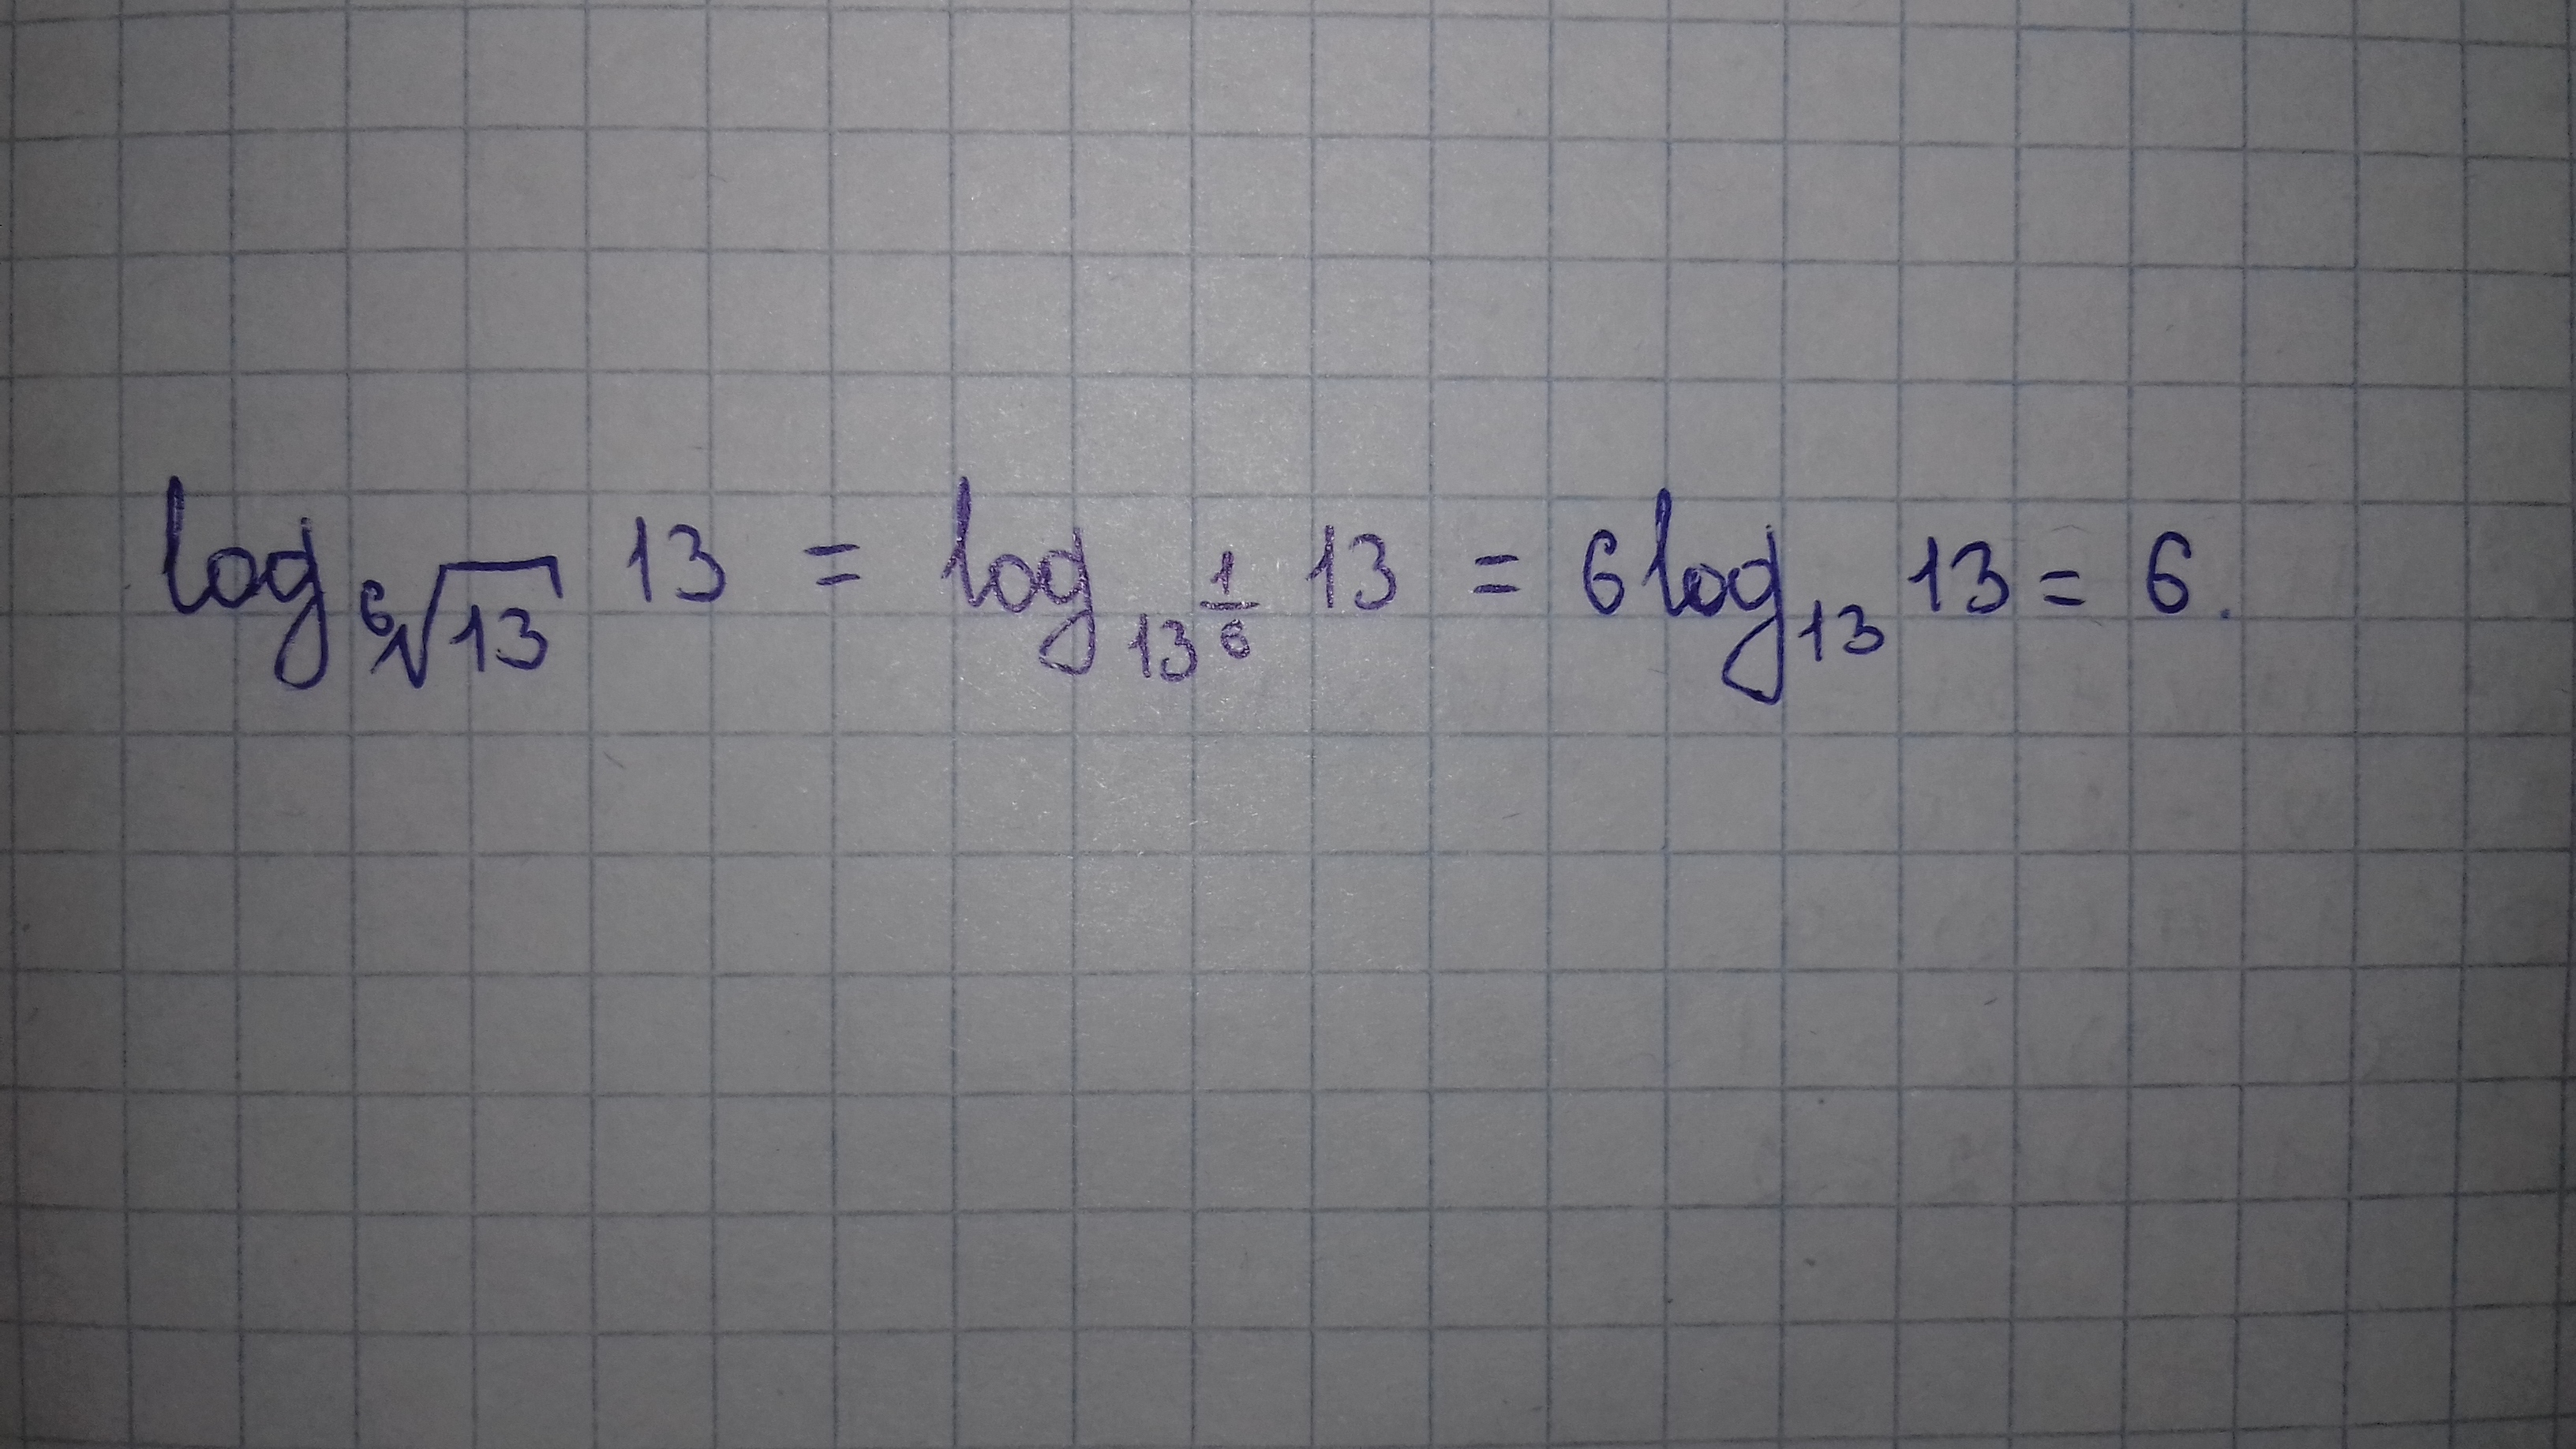 log_{\sqrt[6]{13}} 13 = log_{13^{\frac{1}{6}}} 13 = 6 log_{13} 13 = 6.